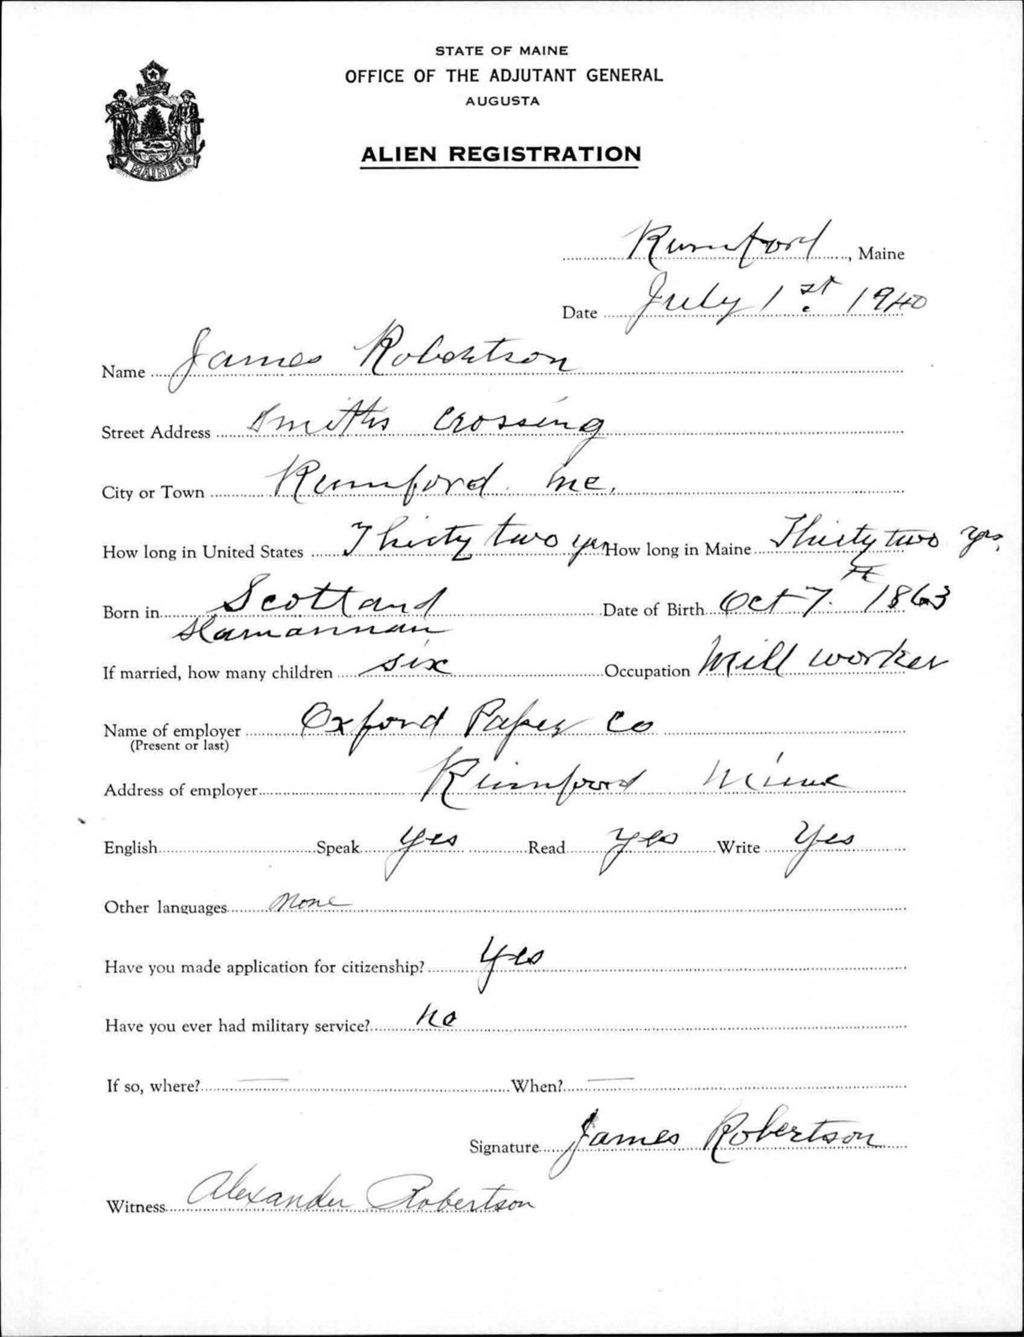 STATE OF MAINE
OFFICE OF THE ADJUTANT GENERAL
AUGUSTA
ALIEN REGISTRATION
MAINE
Rumford, Maine
Date July 1st. 1940
Name James Robertson
Street Address Smiths Crossing
City or Town Rumford. Me.
How long in United States Thirty two yrs How long in Maine Thirty two Yrs.
Born in Scotland Date of Birth Oct 7th 1863
Slamannan
If married, how many children six Occupation Mill worker
Name of employer Oxford Paper Co
(Present or last)
Address of employer Rumford Maine
English Speak yes Read yes Write Yes
Other languages none
Have you made application for citizenship? Yes
Have you ever had military service? no
If so, where? — When? —
Signature James Robertson
Witness Alexander Robertson